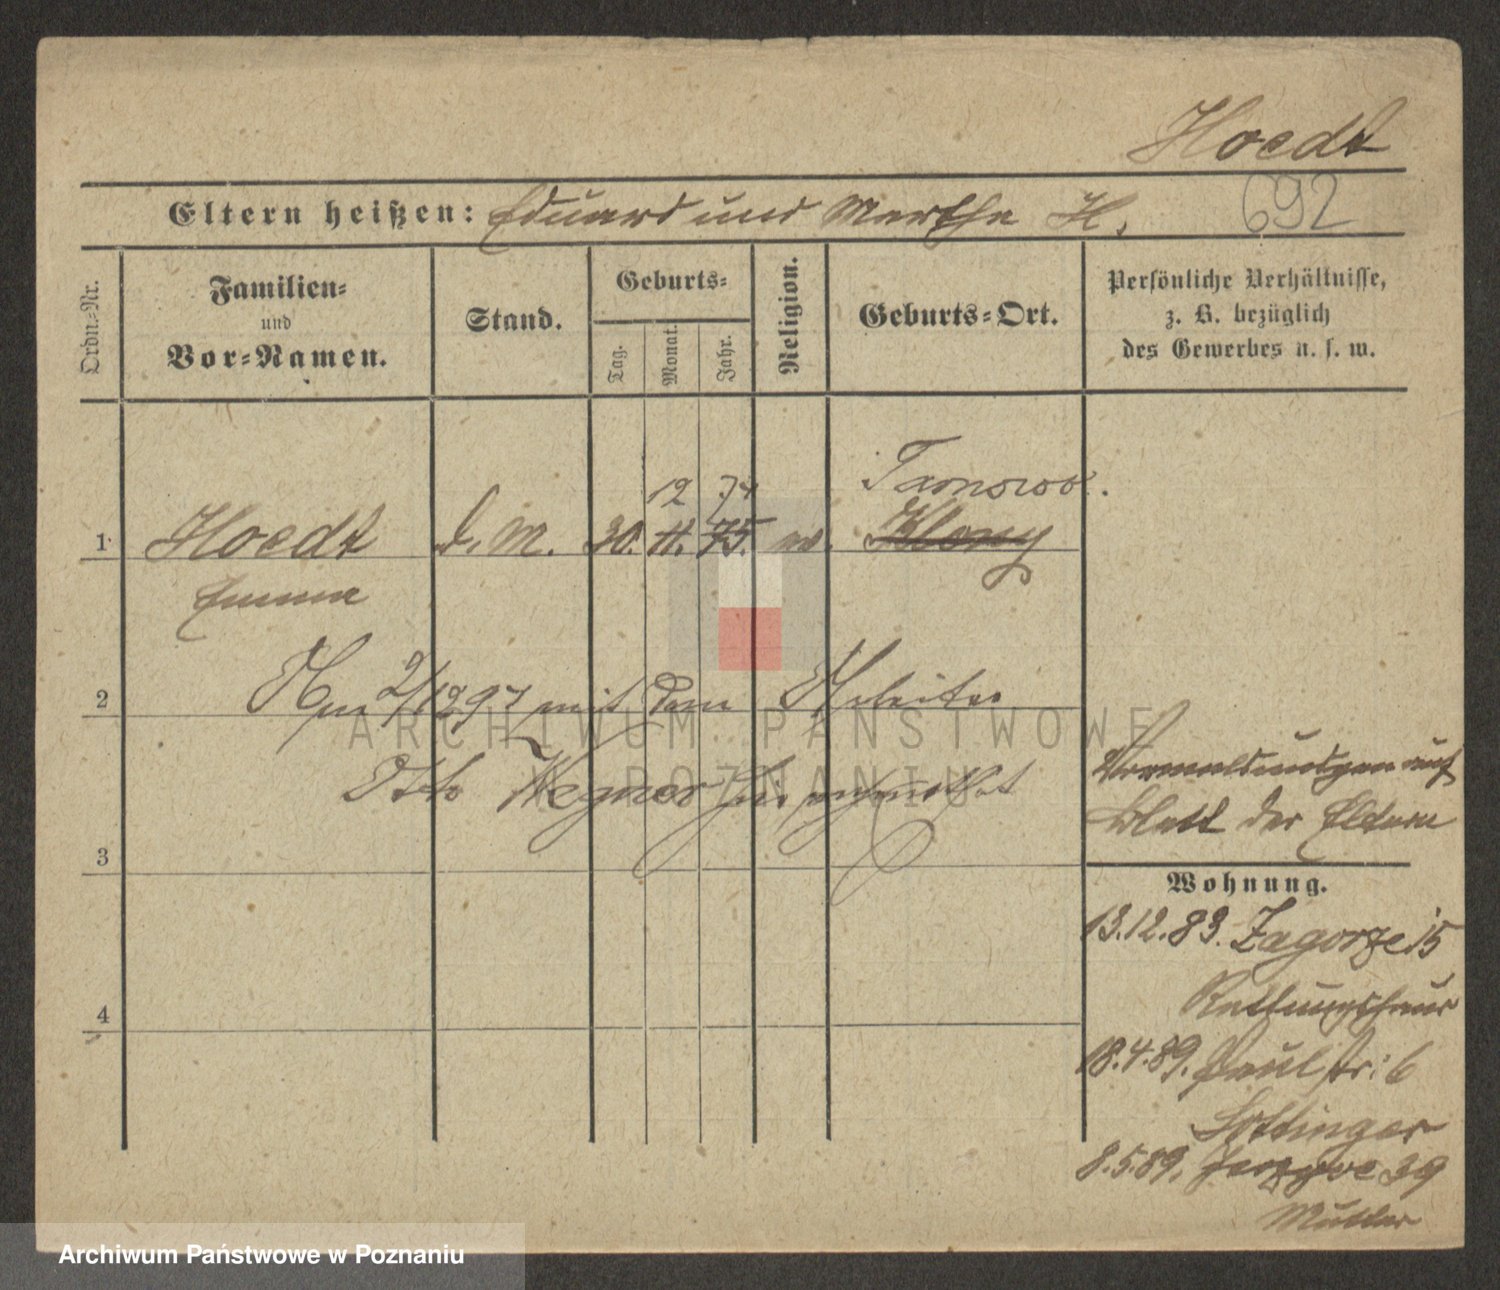 Hoedt
692
Eltern heißen: Eduard und Marthe H.
Ordn.-Nr.
Familien-
und
Vor-Namen.
Stand.
Geburts-
Tag.
Monat.
Jahr.
Religion.
Geburts-Ort.
Persönliche Verhältnisse,
z. B. bezüglich
des Gewerbes u. s. w.
12 74 Tarnowo.
1 Hoedt d. M. 30. 11. 75. ev. Klony
Emma
Am 2/12 97 mit dem Arbeiter
2
Otto Wegner hier
3
4
auf
Blatt der Eltern
Wohnung.
13.12.83. Zagorze 15
Rettungshaus
18.4.89. Paulstr: 6
Hottinger
8.5.89. 39
Mutter
ARCHIWUM PAŃSTWOWE
W POZNANIU
Archiwum Państwowe w Poznaniu